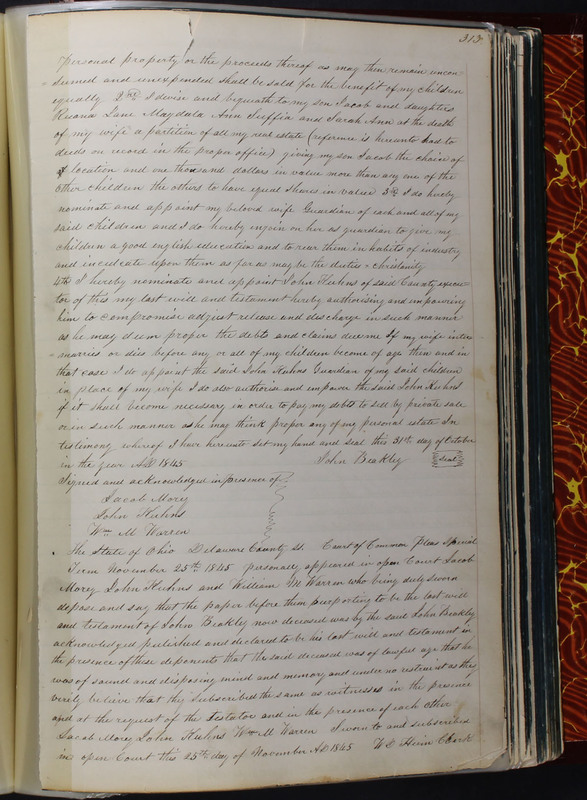 313
Personal Property or the proceeds thereof as may then remain uncon-
sumed and unexpended shall be sold for the benefit of my children
equally 2nd I devise and bequeath to my son Jacob and daughters
Lane Magdala Ann and Sarah Ann at the death
of my wife a partition of all my real estate (reference is hereunto had to
deeds on record in the proper office) giving my son Jacob the choice of
location and one thousand dollars in value more than any one of the
other children the others to have equal shares in value 3rd I do hereby
nominate and appoint my beloved wife Guardian of each and all of my
said children and I do hereby enjoin on her as guardian to give my
children a good english education and to rear them in habits of industry
and inculcate upon them as far as may be the duties of christianity
4th I hereby nominate and appoint John Kuhns of said County execu-
tor of this my last will and testament hereby authorising and empowering
him to compromise adjust release and discharge in such manner
as he may deem proper the debts and claims due me If my wife inter-
marries or dies before any or all of my children become of age then and in
that case I do appoint the said John Kuhns Guardian of my said children
in place of my wife I do also authorise and empower the said John Kuhns
if it shall become necessary in order to pay my debts to sell by private sale
or in such manner as he may think proper any of my personal estate In
testimony whereof I have hereunto set my hand and seal this 31st day of October
in the year AD 1845 John Beakley Seal
Signed and acknowledged in presence of
Jacob Morey
John Kuhns
Wm M Warren
The State of Ohio Delaware County ss. Court of Common Pleas Special
Term November 25th 1845 personally appeared in open Court Jacob
Morey John Kuhns and William M Warren who being duly sworn
depose and say that the paper before them purporting to be the last will
and testament of John Beakley now deceased was by the said John Beakley
acknowledged published and declared to be his last will and testament in
the presence of these deponents that the said deceased was of lawful age that he
was of sound and disposing mind and memory and under no restraint as they
verily believe that they subscribed the same as witnesses in the presence
and at the request of the testator and in the presence of each other
Jacob Morey John Kuhns Wm M Warren Sworn to and subscribed
in open Court this 25th day of November AD 1845 W D Heim Clerk